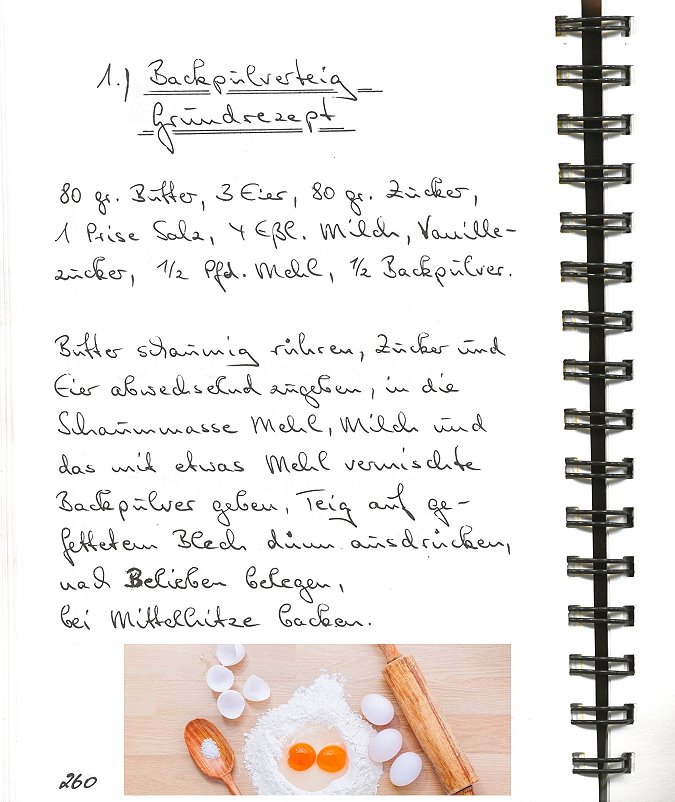 1.) Backpulverteig
Grundrezept
80 gr. Butter, 3 Eier, 80 gr. Zucker,
1 Prise Salz, 4 Eßl. Milch, Vanille-
zucker, 1/2 Pfd. Mehl, 1/2 Backpulver.
Butter schaumig rühren, Zucker und
Eier abwechselnd zugeben, in die
Schaummasse Mehl, Milch und
das mit etwas Mehl vermischte
Backpulver geben, Teig auf ge-
fettetem Blech dünn ausdrücken,
nach Belieben belegen,
bei Mittelhitze backen.
260